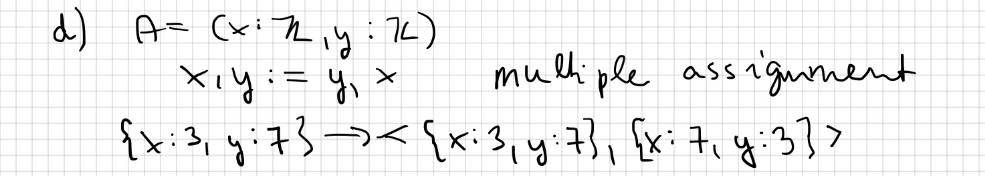 d) A = (x:ℤ, y:ℤ)
x, y := y, x multiple assignment
{x:3, y:7} → < {x:3, y:7}, {x:7, y:3} >